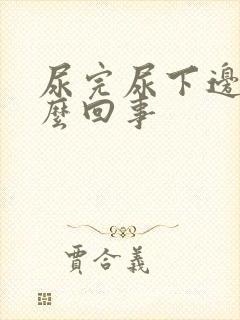 尿完尿下邊
麼回事
賈合義